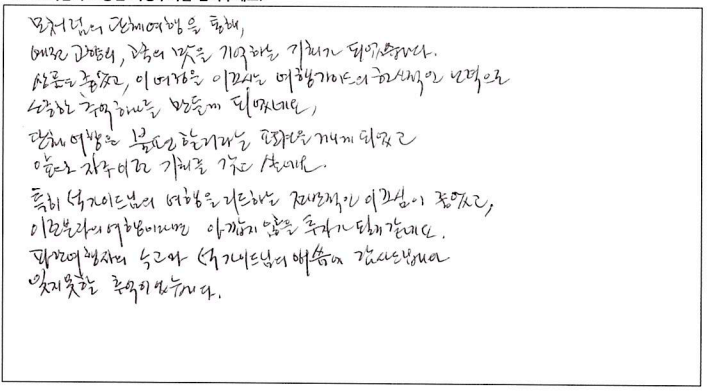 모처럼의 단체여행을 통해,
예전 고향의, 고국의 맛을 기억하는 기회가 되었습니다.
상품도 좋았고, 이 여정을 이끄시는 여행가이드의 헌신적인 노력으로
소중한 추억하나를 만들게 되었네요,
단체여행은 불편할거라는 편견을 깨게 되었고
앞으로 자주이런 기회를 갖고 싶네요.
특히 석가이드님의 여행을 리드하는 전반적인 이끄심이 좋았고,
이런분과의 여행이라면 아깝지 않을 투자가 될거같네요.
여행사의 노고와 석가이드님의 애씀에 감사드립니다
잊지못할 추억이었습니다.